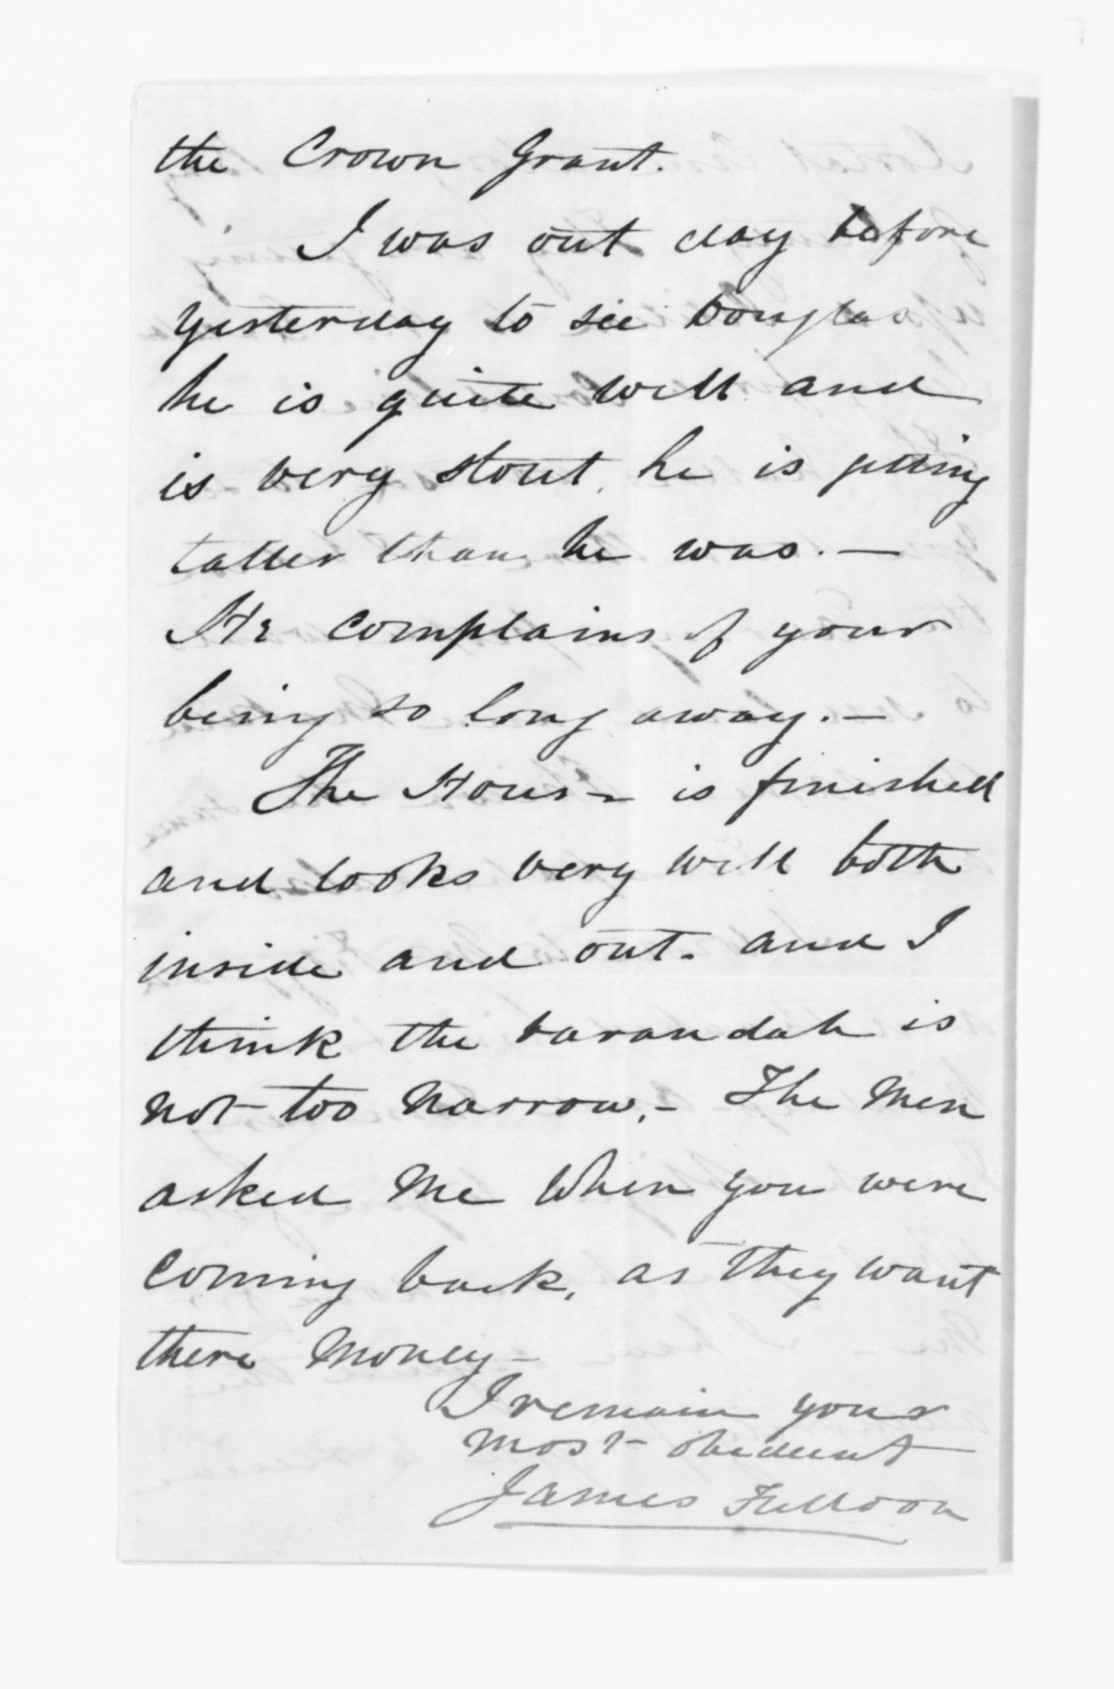 the Crown Grant.
I was out day before
yesterday to see Douglas
he is quite well and
is very stout, he is getting
taller than he was. —
He complains of your
being so long away. —
The House is finished
and looks very well both
inside and out. and I
think the varandah is
not too narrow. — The Men
asked Me When you were
coming back, as they want
there Money —
I remain your
most obedient
James Fulloon